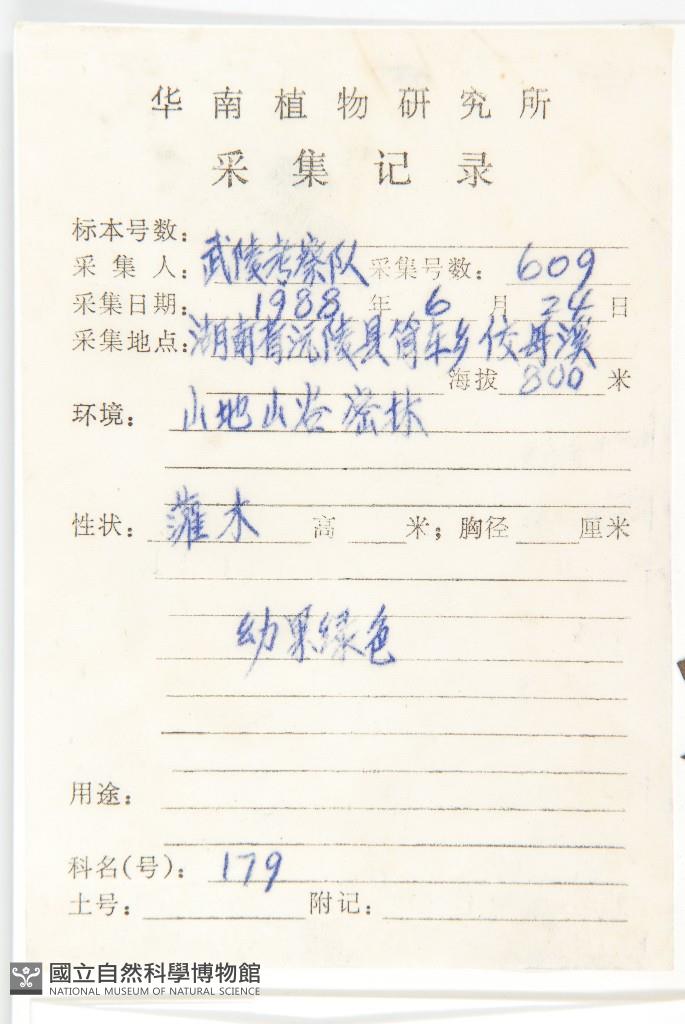 华南植物研究所
采集记录
标本号数：
采集人：武陵考察队 采集号数：609
采集日期：1988年6月24日
采集地点：湖南省沅陵县
海拔 800 米
环境：山地山谷密林
性状：灌木 高 米；胸径 厘米
幼果绿色
用途：
科名(号)：179
土号： 附记：
國立自然科學博物館
NATIONAL MUSEUM OF NATURAL SCIENCE